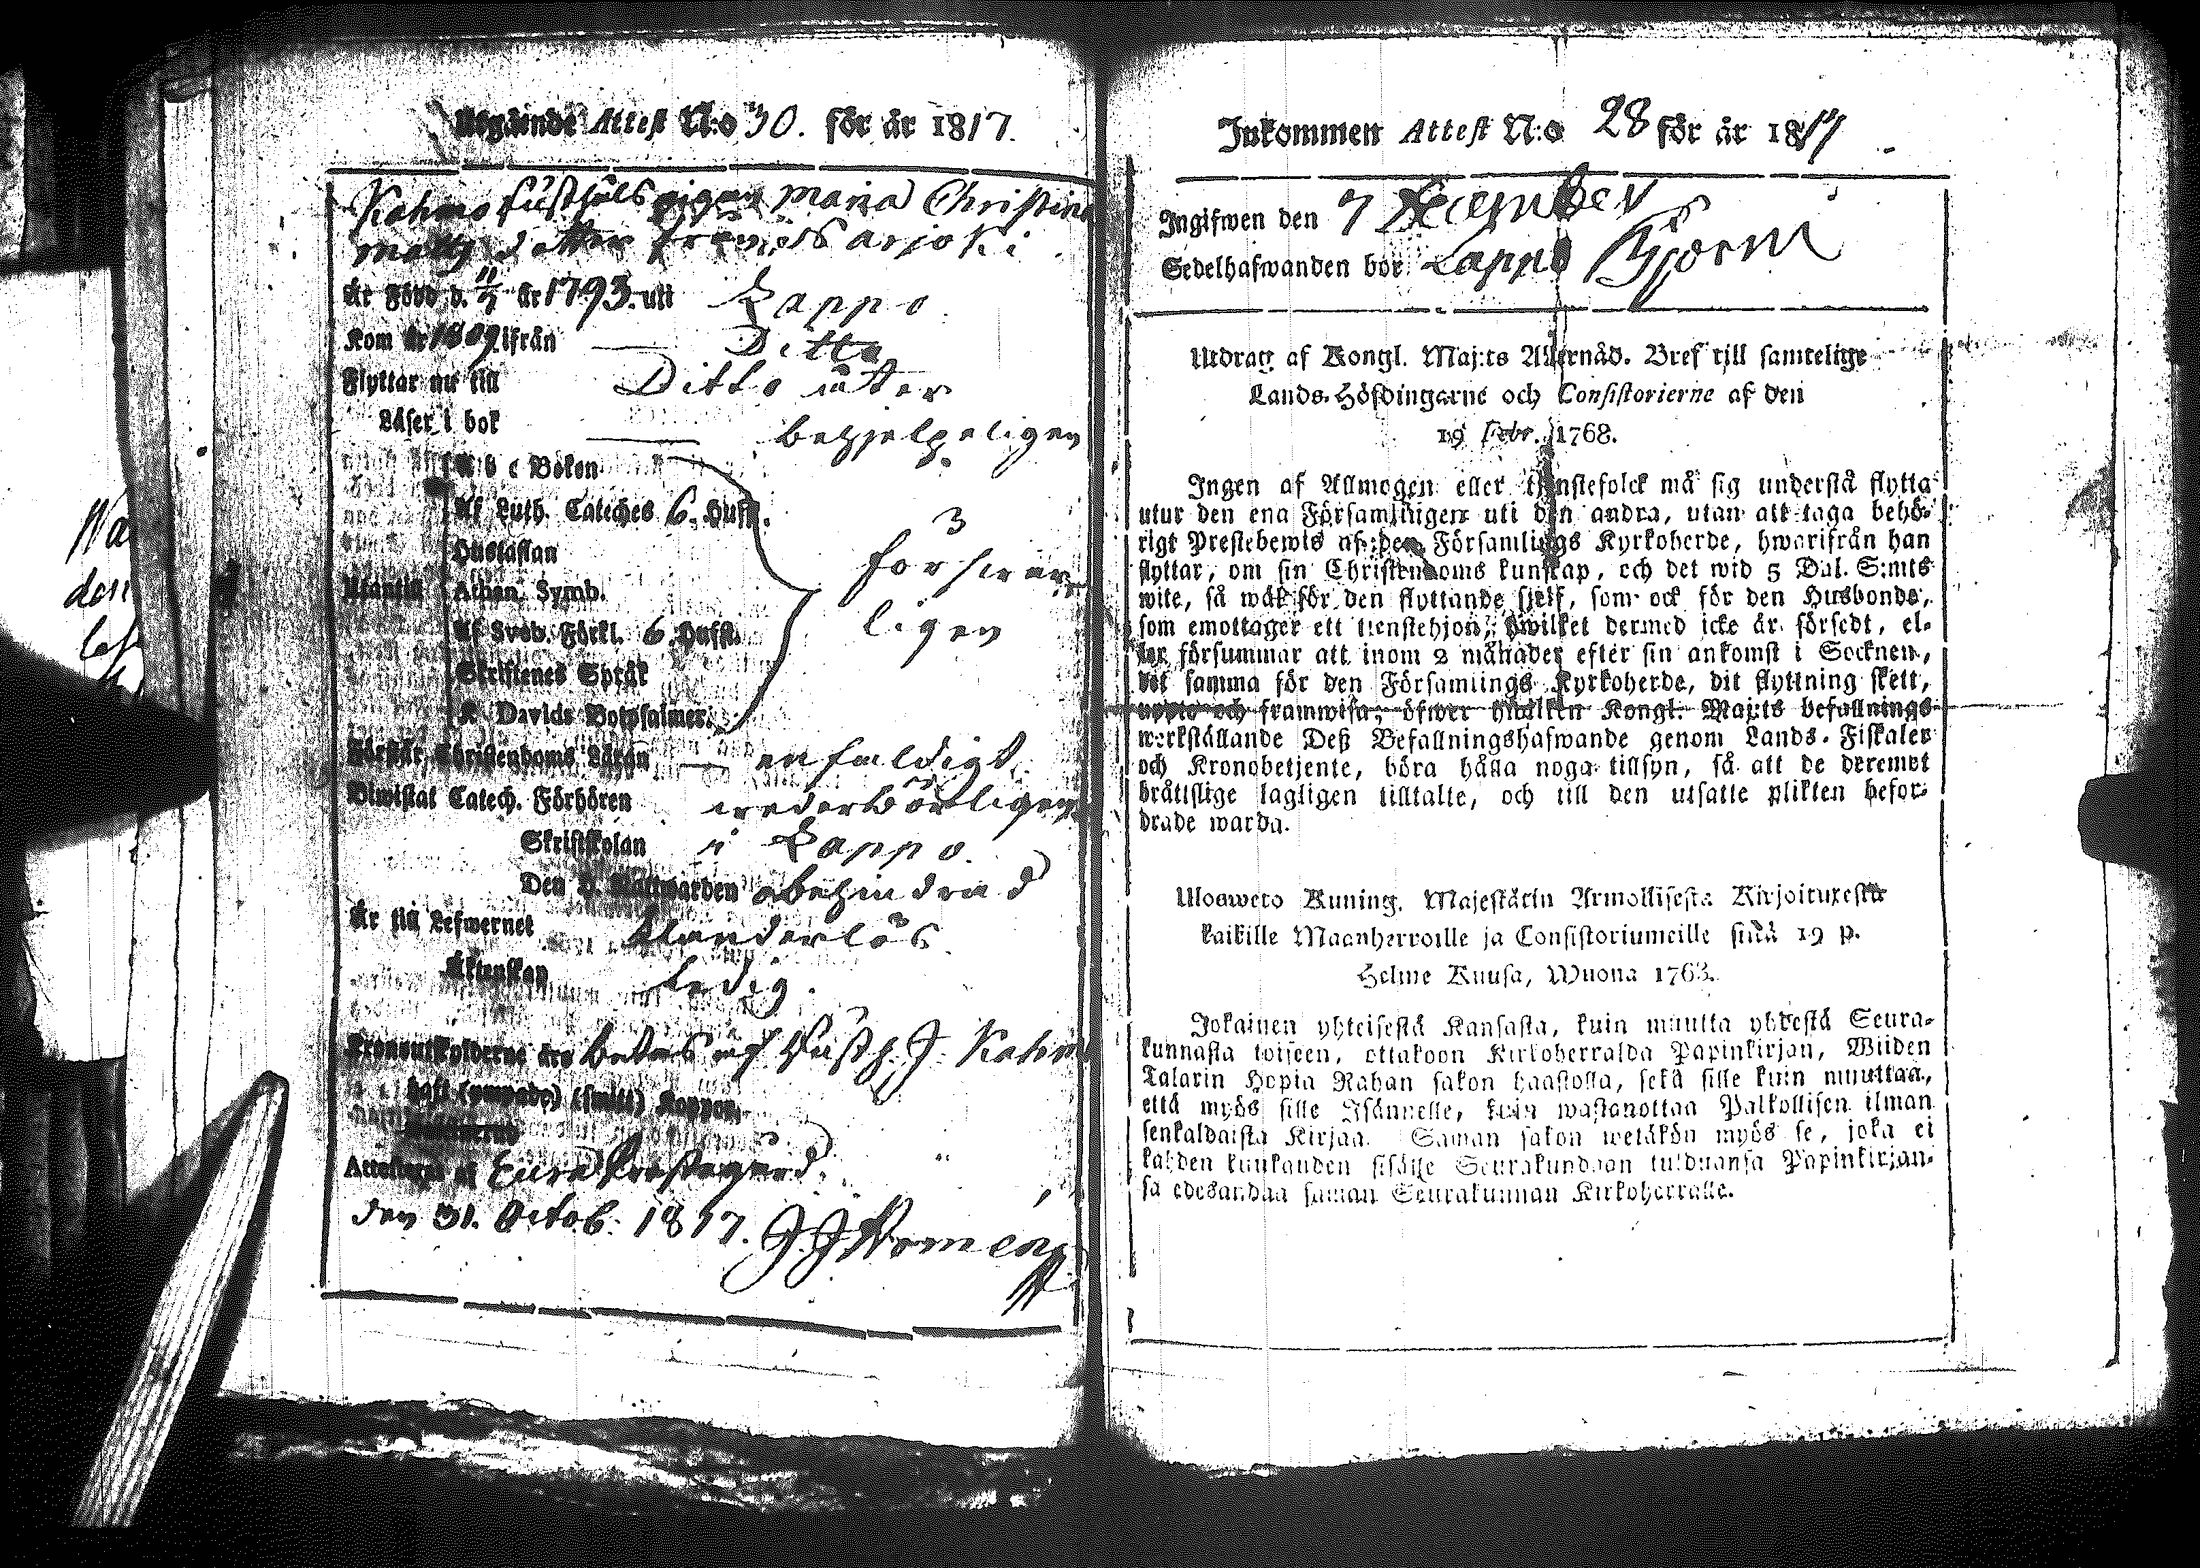 Utgående Attest N:o 30. för år 1817.
Kahma Rusthåls pigan Maria Christina
Matts dotter från Sarjoki
Är Född d. 11/7 år 1793. uti Lappo
Kom år 1809 ifrån Ditto
Flyttar nu till Ditto åter
Läser i bok behjelpeligen
A b c Boken
Af Luth. Cateches 6. Hufst.
Hustaflan
Utantill Athan. Symb.
Af Sveb. Förkl. 6 Hufst.
Skriftenes Språk
K. Davids Botpsalmer.
försvar
ligen
Förstår Christendoms Läran enfaldigt
Biwistat Catech. Förhören wederbörligen
Skriftskolan i Lappo.
Den H. Nattwarden obehindrad
Är till Lefwernet klanderlös
Äktenskap Ledig.
Kronoutskylderne äro betas af Rusth. J. Kahma
haft (ympade) (smitt) Koppor,
Attesterat af Eura Prestegård.
den 31. Octob. 1817.
Inkommen Attest N:o 28 för år 1817
Ingifwen den 7 December
Sedelhafwanden bor Lappo
Utdrag af Kongl. Maj:ts Allernåd. Bref till samtelige
Lands-Höfdingarne och Consistorierne af den
19 Febr. 1768.
Ingen af Allmogen eller tjenstefolck må sig understå flytta
utur den ena Församlingen uti den andra, utan att taga behö-
rigt Prestebewis af den Församlings Kyrkoherde, hwarifrån han
flyttar, om sin Christendoms kunskap, och det wid 5 Dal. S:mts
wite, så wäl för den flyttande sjelf, som ock för den Husbonde,
som emottager ett tienstehjon, hwilket dermed icke är försedt, el-
ler försummar att inom 2 månader efter sin ankomst i Socknen,
det samma för den Församlings Kyrkoherde, dit flyttning skett,
uppte och framwisa; öfwer hwilken Kongl. Maj:ts befallnings
werkställande Deß Befallningshafwande genom Lands-Fiskaler
och Kronobetjente, böra hålla noga tillsyn, så att de deremot
bråttslige lagligen tilltalte, och till den utsatte plikten befor-
drade warda.
Uloswero Kuning. Majestätin Armollisesta Kirjoituxesta
kaikille Maanherroille ja Consistoriumeille siitä 19 p.
Helme Kuusa, Wuona 1768.
Jokainen yhteisestä Kansasta, kuin muutta yhdestä Seura-
kunnasta toiseen, ottakoon Kirkoherralda Papinkirjan, Wiiden
Talarin Hopia Rahan sakon haastolla, sekä sille kuin muuttaa,
että myös sille Isännelle, kuin wastanottaa Palkollisen ilman
senkaldaista Kirjaa. Saman sakon wetäkön myös se, joka ei
kahden kuukauden sisälle Seurakundaan tulduansa Papinkirjan-
sa edesandaa saman Seurakunnan Kirkoherralle.